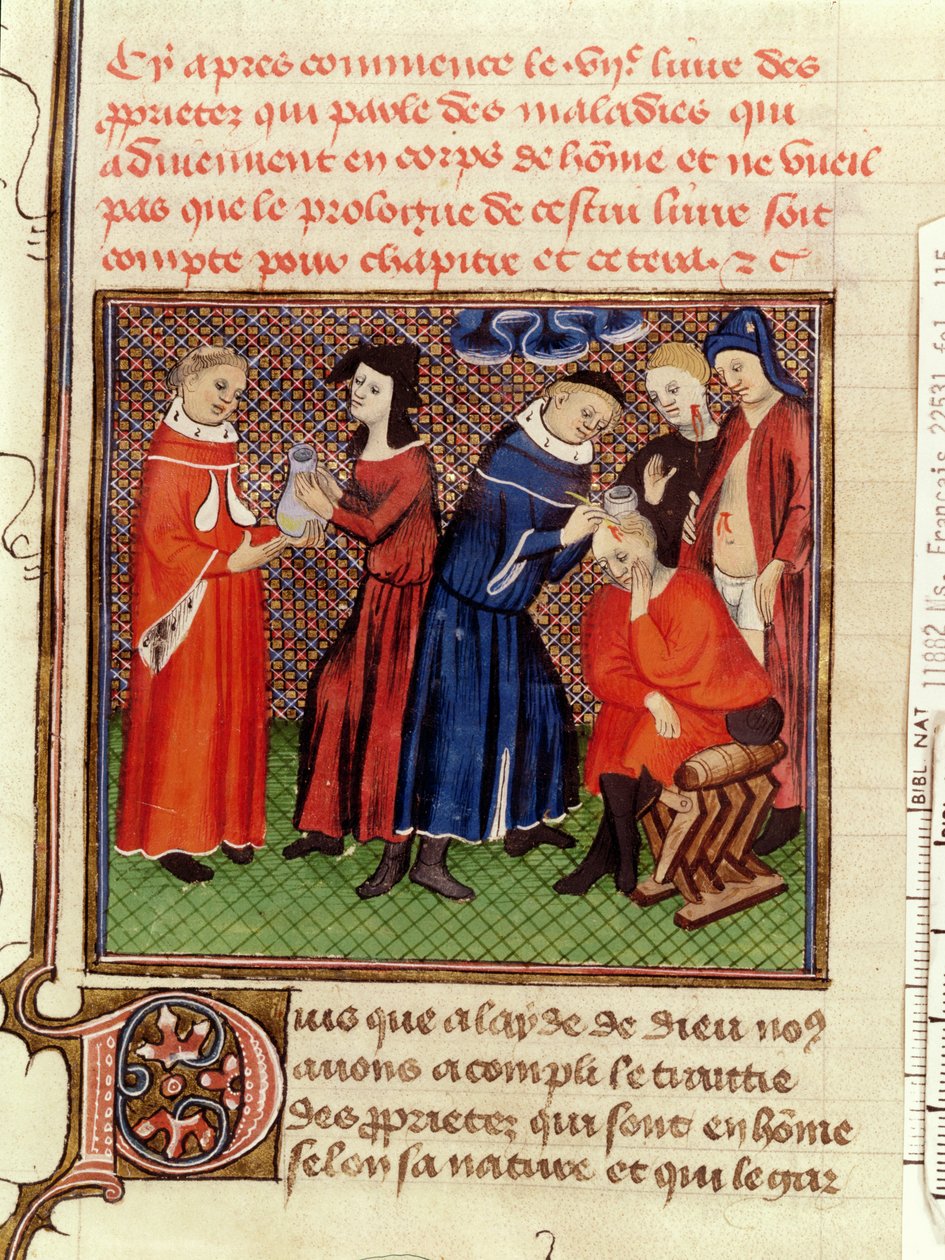 Cy apres commence le .vije. liure des
pprietez qui parle des maladies qui
aduiennent en corps de hõme et ne vueil
pas que le prologue de cestui liure soit
compte pour chapitre et cetera. z c
Puis que a layde de dieu no9
auons acompli le traittie
des pprietez qui sont en hõme
selon sa nature et qui le gar
BIBL. NAT 11882 Ms. Français 22531 fol 115